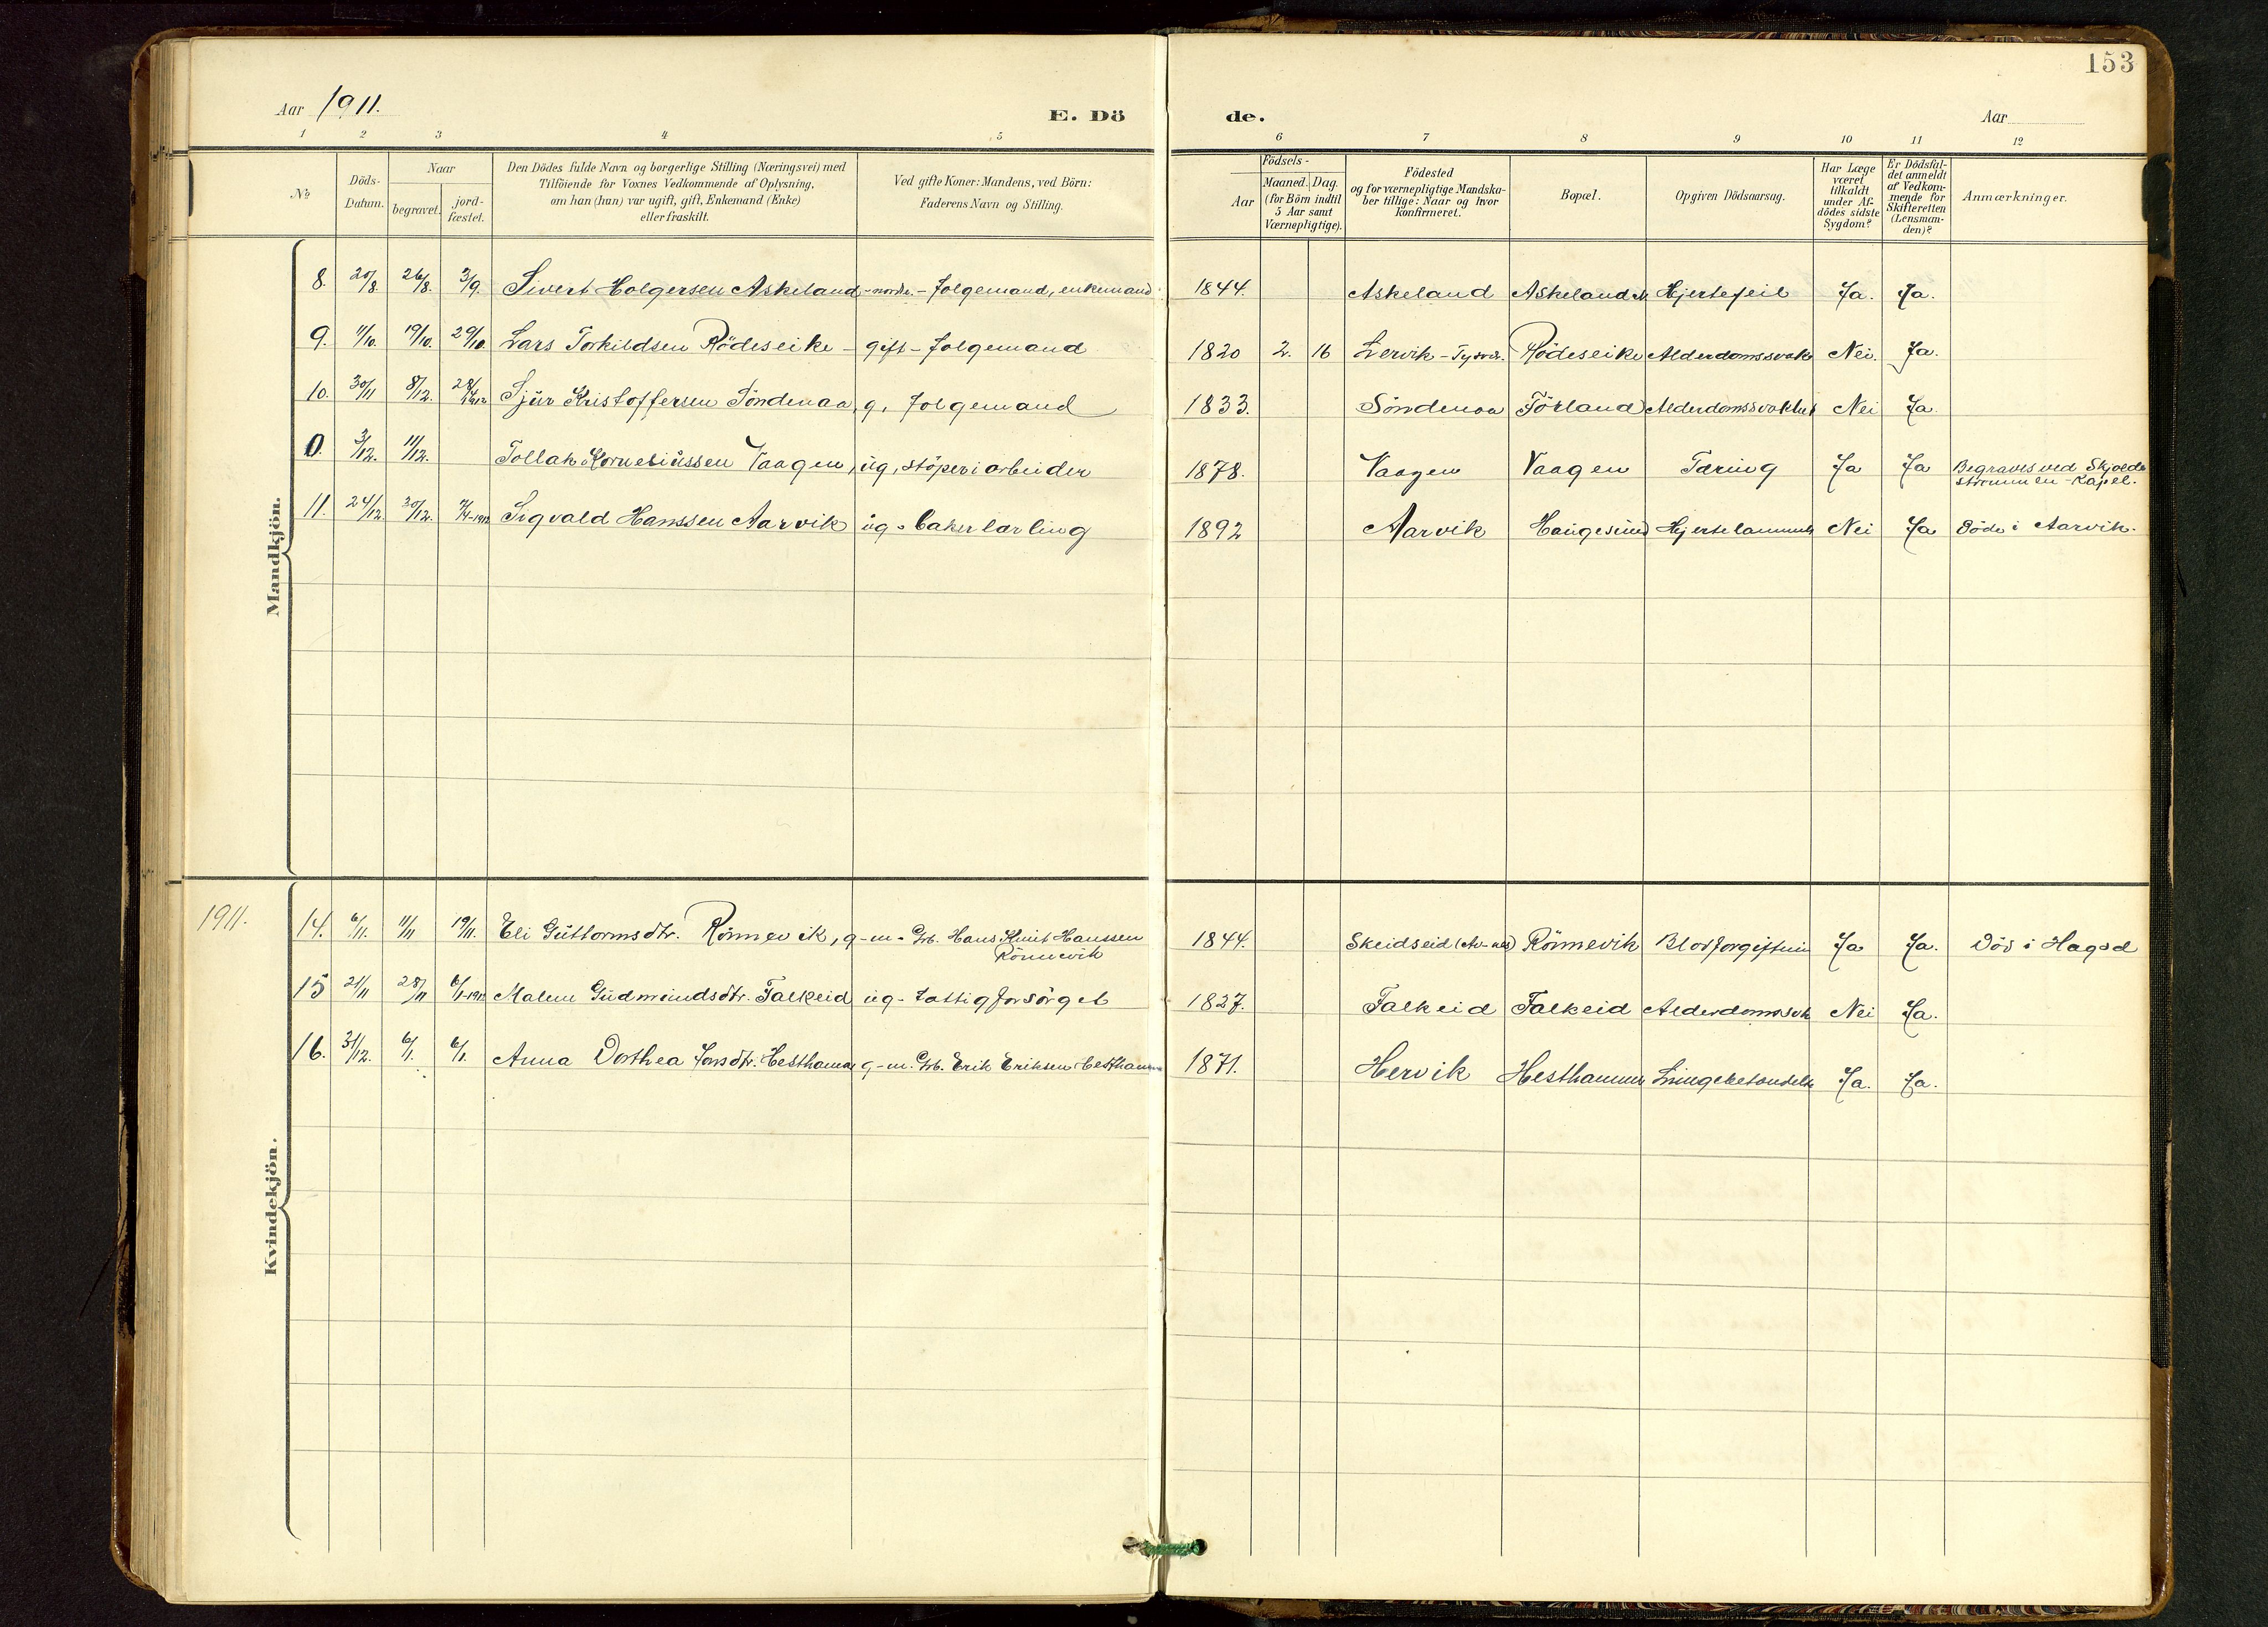 153
Aar 1911.
E. Dö
de.
Aar
1 2 3 4 5 6 7 8 9 10 11 12
№
Döds-
Datum.
Naar
begravet.
jord-
fæstet.
Den Dödes fulde Navn og borgerlige Stilling (Næringsvei) med
Tilföiende for Voxnes Vedkommende af Oplysning,
om han (hun) var ugift, gift, Enkemand (Enke)
eller fraskilt.
Ved gifte Koner: Mandens, ved Börn:
Faderens Navn og Stilling.
Födsels-
Aar
Maaned. Dag.
(for Börn indtil
5 Aar samt
Værnepligtige).
Födested
og for værnepligtige Mandska-
ber tillige: Naar og hvor
konfirmeret.
Bopæl.
Opgiven Dödsaarsag.
Har Læge
været
tilkaldt
under Af-
dödes sidste
Sygdom?
Er Dödsfal-
det anmeldt
af Vedkom-
mende for
Skifteretten
(Lensman-
den)?
Anmærkninger.
Mandkjön.
8. 20/8. 26/8. 3/9. Sivert Holgersen Askeland -nordre.- Folgemand, enkemand 1844. Askeland Askeland Hjertefeil Ja. Ja.
9. 11/10. 19/10. 29/10. Lars Torkildsen Rödeseike - gift - Folgemand 1820 2. 16 Lervik - Tysvær. Rödeseike Alderdomssvak Nei. Ja.
10. 30/11 8/12. Sjur Kristoffersen Söndenaa, g. Folgemand 1833. Söndenaa Förland Alderdomssvakhet Nei Ja.
0. 3/12. 11/12. Tollak Korneliussen Vaagen, ug, stöperiarbeider 1878. Vaagen Vaagen Tæring Ja Ja Begraves ved Skjolde
strömmen - Kapel.
11. 24/12. 30/12. Sigvald Hanssen Aarvik ug - bakerlærling 1892 Aarvik Haugesund Hjertelammels Nei Ja Döde i Aarvik.
Kvindekjön.
1911.
14. 6/11. 11/11 19/11. Eli Guttormsdtr. Rönnevik, g - m - Grb. Hans Knut Hanssen
Rönnevik 1844. Skeidseid Rönnevik Blodforgiftnin Ja Ja. Död i Hagsd
15 21/11 28/11 6/1-1912 Malene Gudmundsdtr. Falkeid ug - Fattigforsörget 1827. Falkeid Falkeid Alderdomssvk Nei Ja.
16. 31/12. 6/1. 6/1. Anna Dorthea Jonsdtr. Hesthamar g - m. Grb. Erik Eriksen Hesthammer 1871. Hervik Hesthammer Lungebetændelse Ja. Ja.